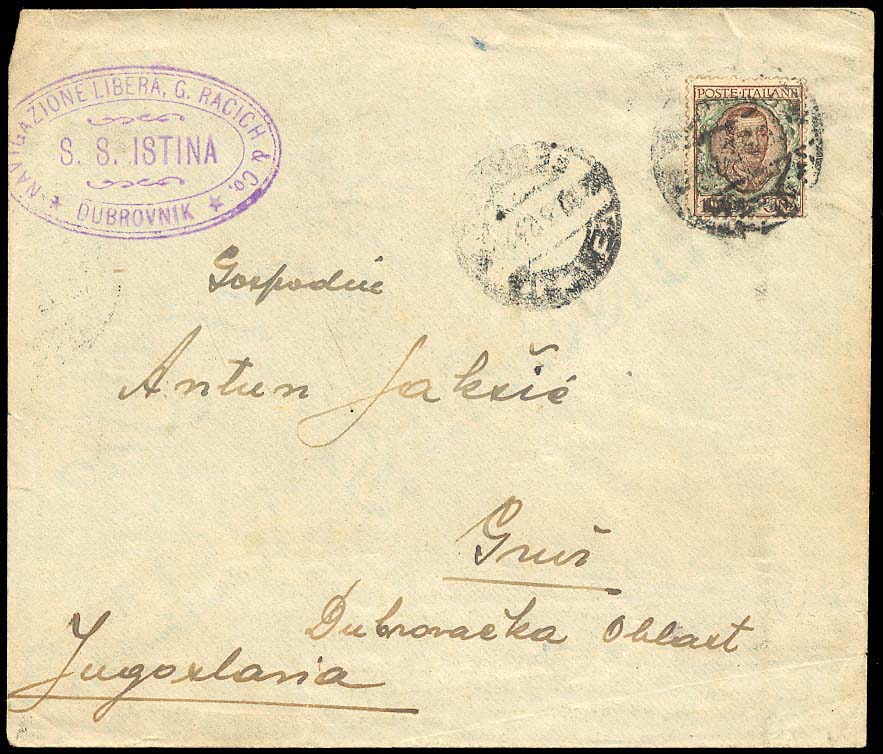 NAVIGAZIONE LIBERA, G. RACICH & Co.
S. S. ISTINA
★ DUBROVNIK ★
POSTE·ITALIANE
Gospodin
Antun Jakšić
Gruž
Dubrovačka Oblast
Jugoslavia